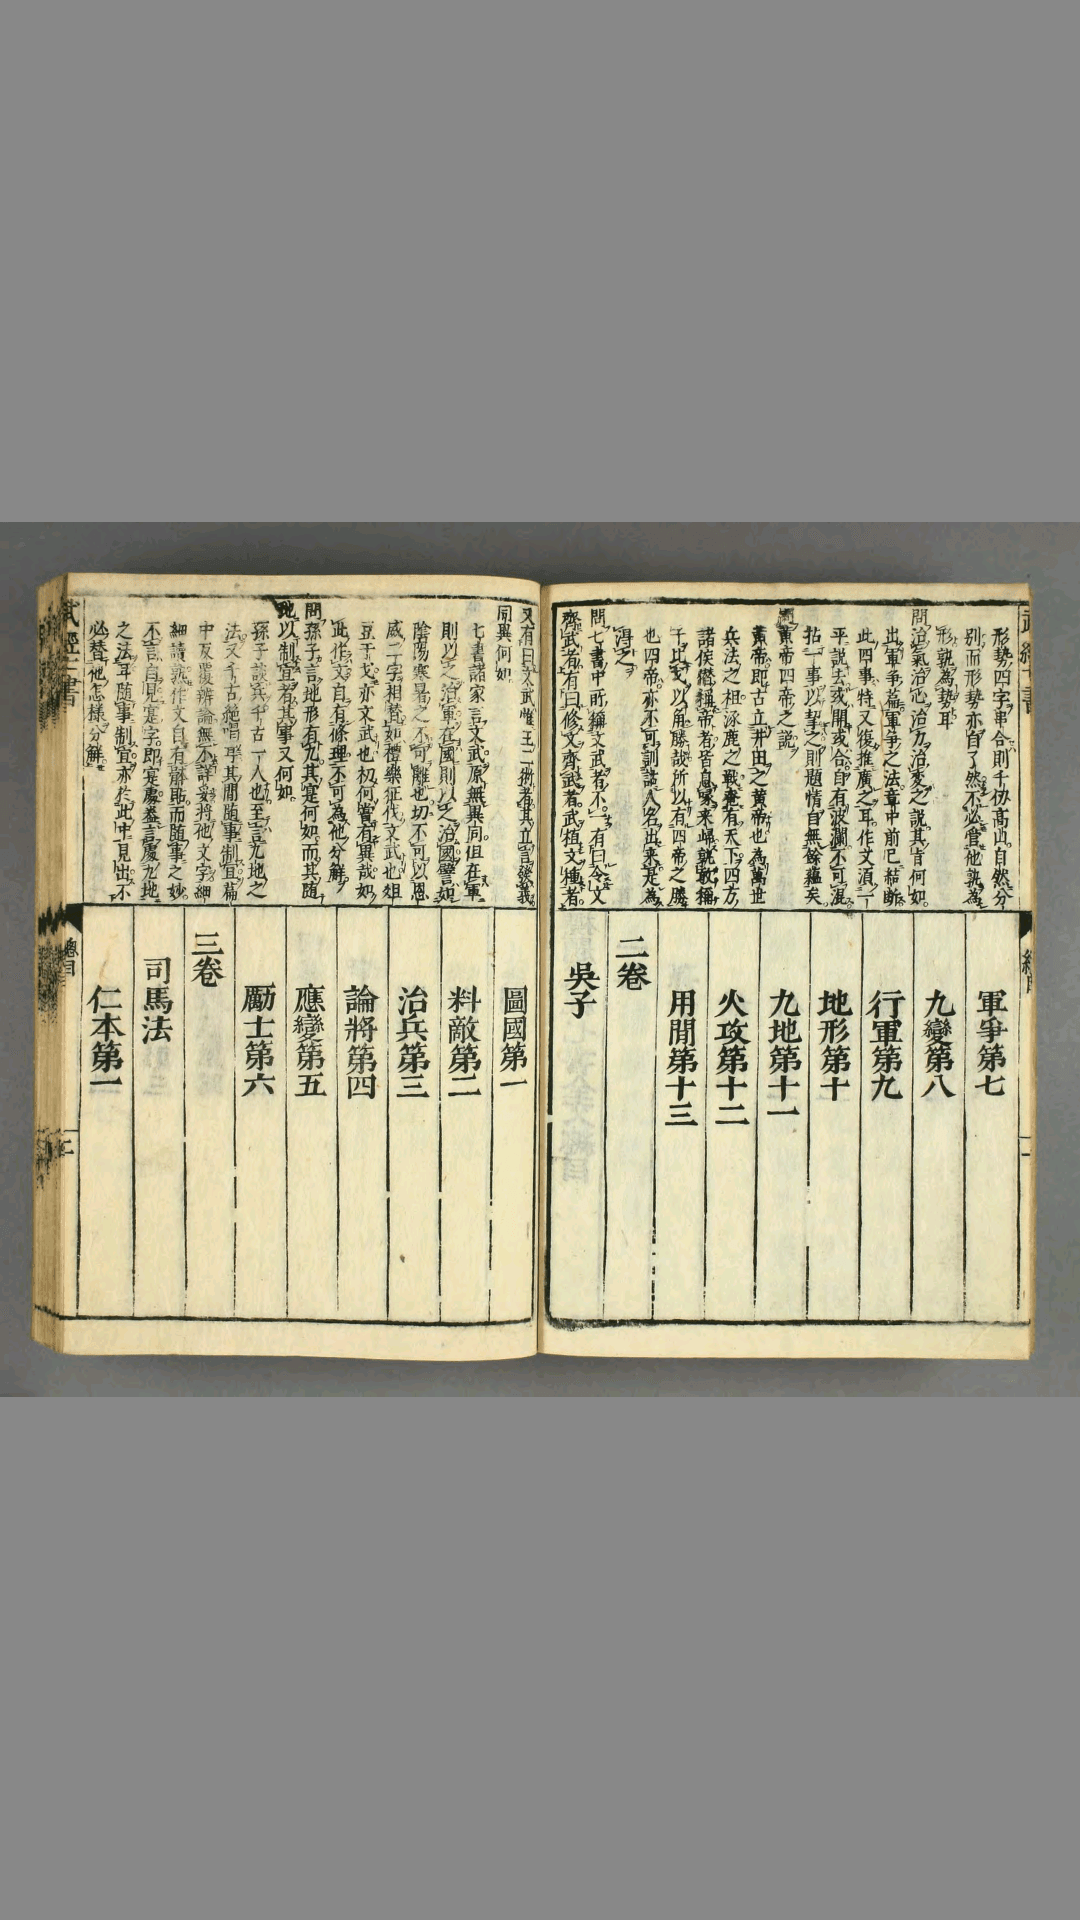 形勢四字串合則千仭高山自然分
別而形勢亦自了然不必管他孰為
形孰為勢耳
問治氣治心治力治変之說其旨何如
出軍爭篇軍爭之法章中前已結斷
此四事特又復推廣之耳作文湏二
平說去或開或合自有波瀾不可混
拈一事以挈之則題情自無餘蘊矣
問黃帝四帝之說
黃帝即古立井田之黃帝也為萬世
兵法之祖涿鹿之戰奄有天下四方
諸侯僭稱帝者皆息
干比戈以角勝哉所以有四帝之勝
也四帝亦不可訓誥人名出来是為
淂之
問七書中所稱文武者不一有曰令文
齊武者有曰修文齊武者武植文種者
軍爭第七
九變第八
行軍第九
地形第十
九地第十一
火攻第十二
用間第十三
二卷
吳子
又有曰太武惟王二術者其立言發義
同異何如
七書諸家言文武原無異同但在軍
則以之治軍在國則以之治國譬如
陰陽寒暑之不可離也切不可以恩
威二字相替如禮樂征伐文武也俎
豆干戈亦文武也初何嘗有異哉如
此作文自有條理不可為他分觧
問孫子言地形有九其寔何如而其随
地以制宜者其事又何如
孫子談兵千古一人也至言九地之
法又千古絶唱耳其間随事制宜篇
中反覆辨論無不詳妥將他文字細
細讀熟作文自有齋貼而随事之妙
不言自見寔字即寔處葢言處九地
之法耳随事制宜亦於此中見出不
必替他怎樣分觧
圖國第一
料敵第二
治兵第三
論將第四
應變第五
勵士第六
三卷
司馬法
仁本第一
武經七書
總目
二